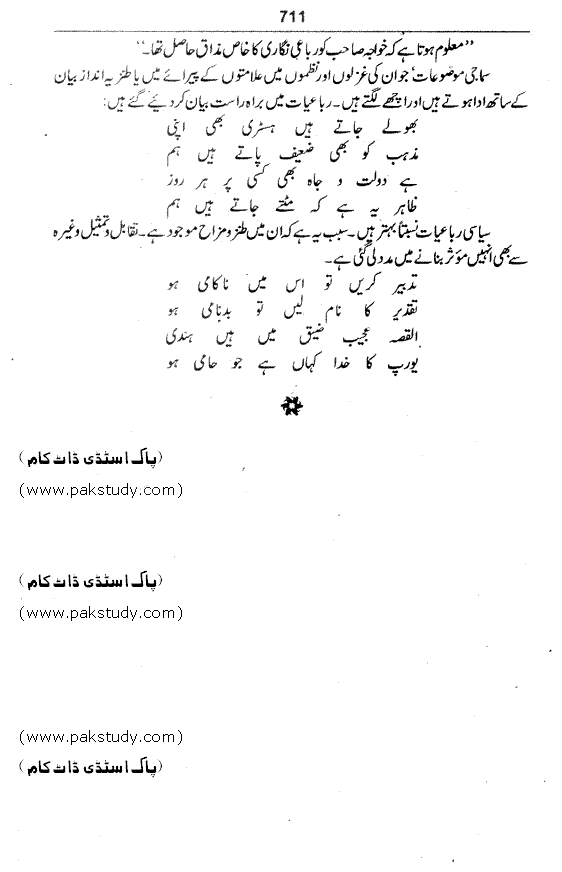 711
”معلوم ہوتا ہے کہ خواجہ صاحب کو رباعی نگاری کا خاص مذاق حاصل تھا۔“
سماجی موضوعات‘ جو ان کی غزلوں اور نظموں میں علامتوں کے پیرائے میں یا طنزیہ انداز بیان
کے ساتھ ادا ہوتے ہیں اور اچھے لگتے ہیں۔ رباعیات میں براہ راست بیان کر دیئے گئے ہیں:
بھولے جاتے ہیں ہسٹری بھی اپنی
مذہب کو بھی ضعیف پاتے ہیں ہم
ہے دولت و جاہ بھی کسی پر ہر روز
ظاہر یہ ہے کہ مٹتے جاتے ہیں ہم
سیاسی رباعیات نسبتاً بہتر ہیں۔ سبب یہ ہے کہ ان میں طنز و مزاح موجود ہے۔ تقابل و تمثیل وغیرہ
سے بھی انہیں مؤثر بنانے میں مدد لی گئی ہے۔
تدبیر کریں تو اس میں ناکامی ہو
تقدیر کا نام لیں تو بدنامی ہو
القصہ عجیب ضیق میں ہیں ہندی
یورپ کا خدا کہاں ہے جو حامی ہو
(پاک اسٹڈی ڈاٹ کام)
(www.pakstudy.com)
(پاک اسٹڈی ڈاٹ کام)
(www.pakstudy.com)
(www.pakstudy.com)
(پاک اسٹڈی ڈاٹ کام)